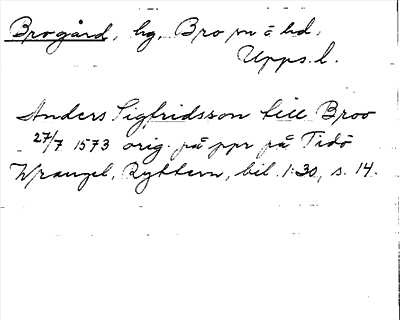 Brogård, hg, Bro sn o hd.
Upps. l.
Anders Sigfridsson till Broo
27/7 1573 orig. på ppr på Tidö
Wrangel, Ryttern, bil. 1:30, s. 14.